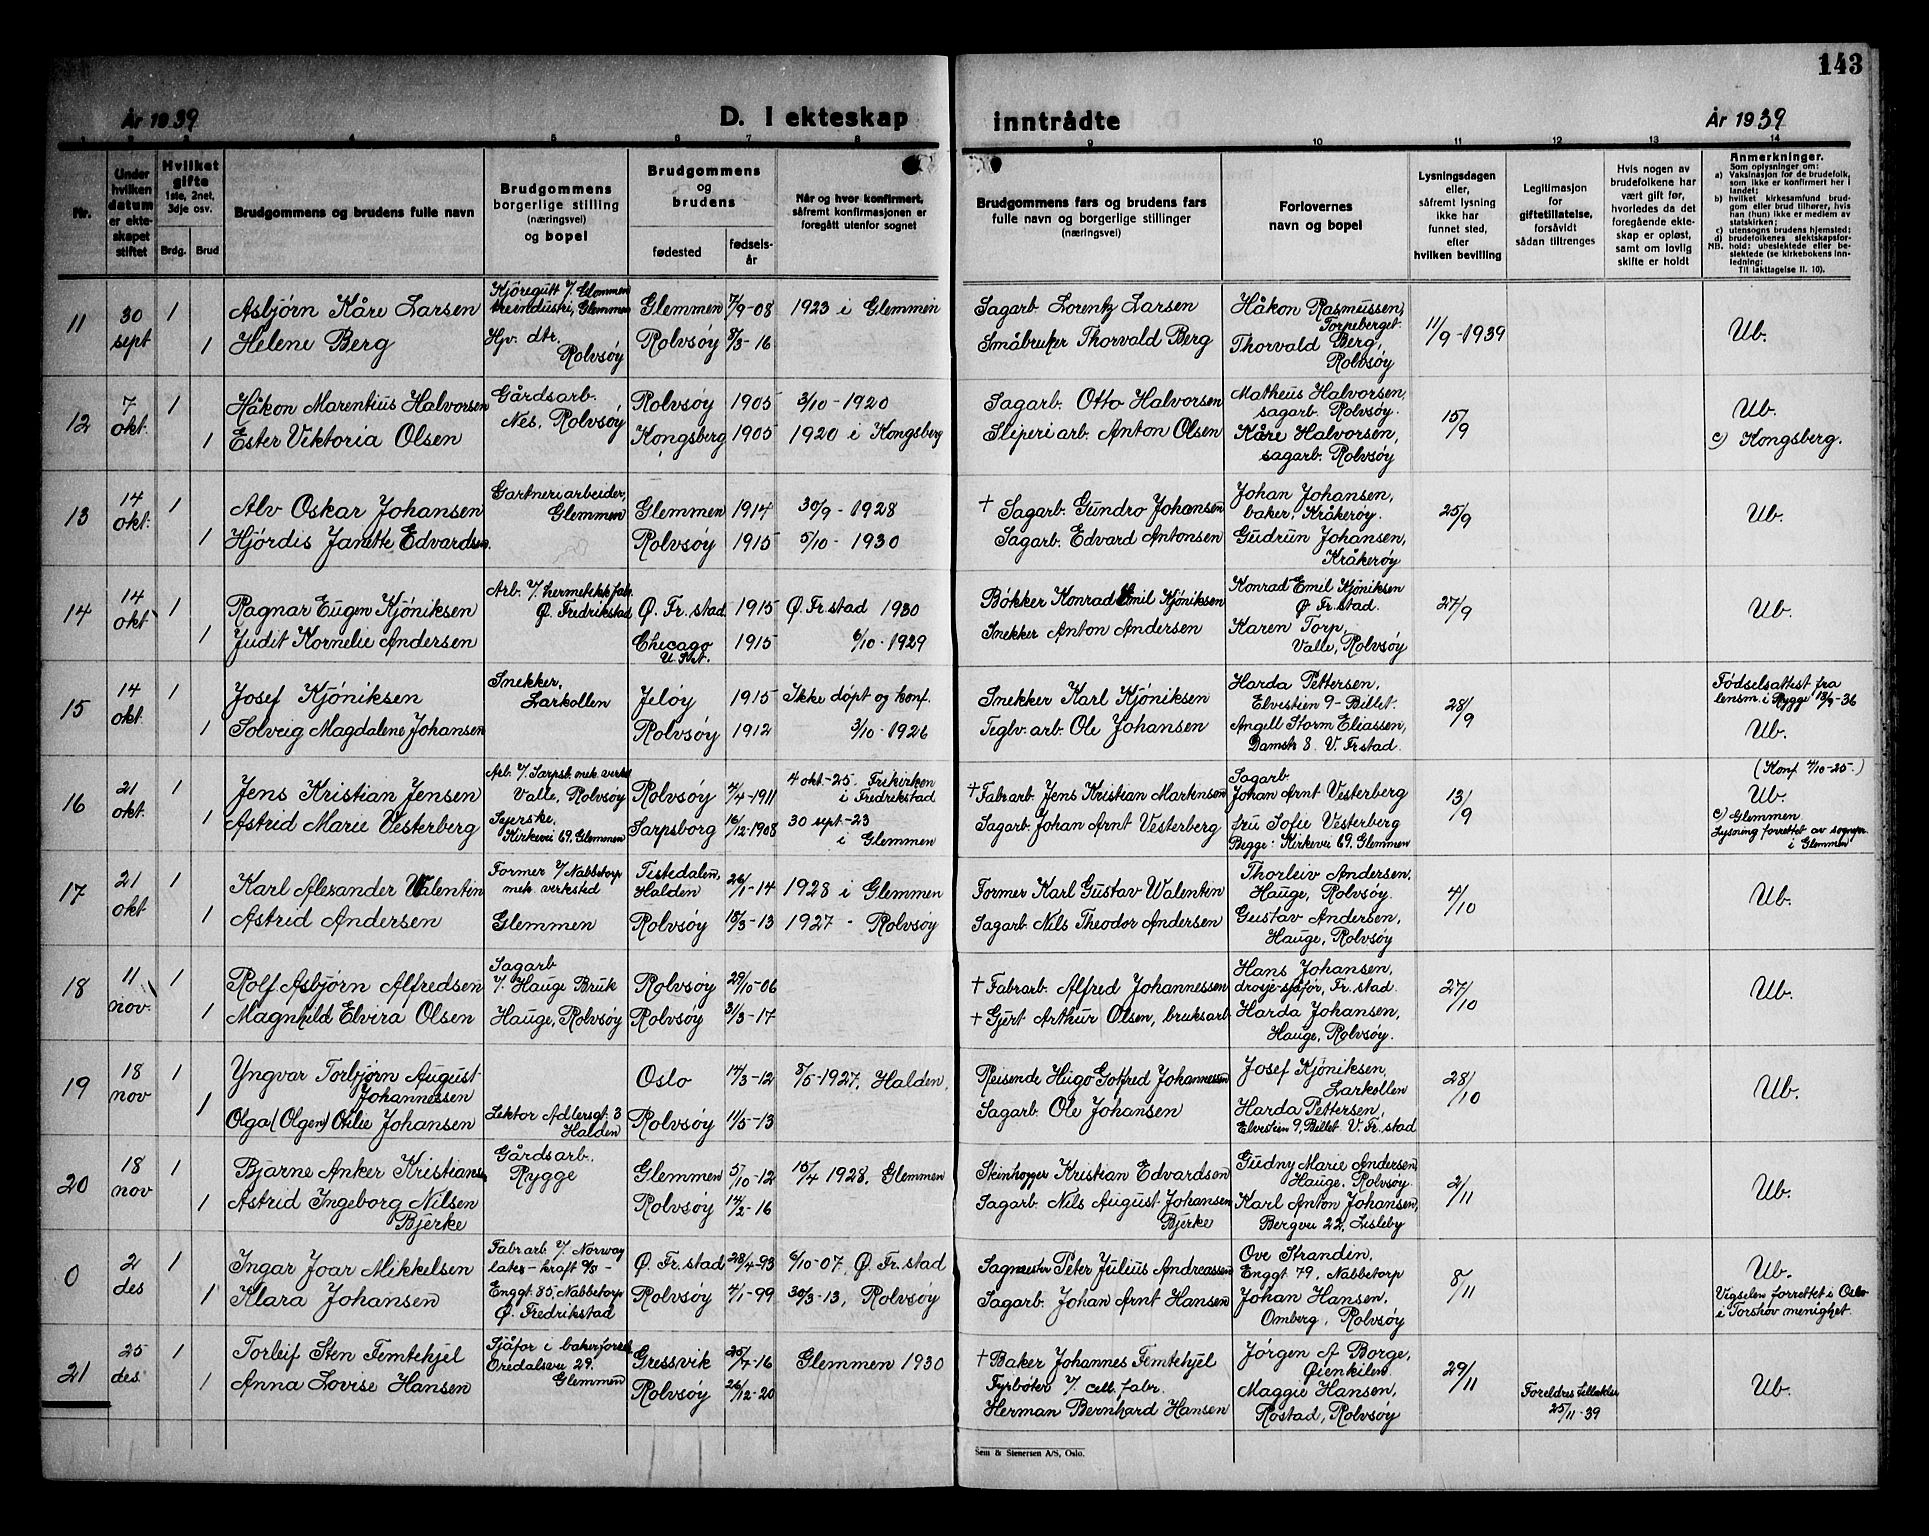 143
År 1939
D. I ekteskap
inntrådte
År 1939
1 2 3 4 5 6 7 8 9 10 11 12 13 14
Nr.
Under hvilken datum er ekteskapet stiftet
Hvilket gifte 1ste, 2net, 3dje osv.
Brdg. Brud
Brudgommens og brudens fulle navn
Brudgommens borgerlige stilling (næringsvei) og bopel
Brudgommens og brudens
fødested
fødselsår
Når og hvor konfirmert, såfremt konfirmasjonen er foregått utenfor sognet
Brudgommens fars og brudens fars fulle navn og borgerlige stillinger (næringsvei)
Forlovernes navn og bopel
Lysningsdagen eller, såfremt lysning ikke har funnet sted, efter hvilken bevilling
Legitimasjon for giftetillatelse, forsåvidt sådan tiltrenges
Hvis nogen av brudefolkene har vært gift før, hvorledes da det foregående ekteskap er opløst, samt om lovlig skifte er holdt
Anmerkninger.
Som oplysninger om:
a) Vaksinasjon for de brudefolk, som ikke er konfirmert her i landet;
b) hvilket kirkesamfund brudgom eller brud tilhører, hvis han (hun) ikke er medlem av statskirken;
c) utensogns brudens hjemsted;
d) brudefolkenes slektskapsforhold: ubeslektede eller beslektede (se kirkebokens innledning:
NB.
Til iakttagelse II. 10).
11 30 sept 1 Asbjørn Kåre Larsen Kjøregutt v/. Glommen treindustri, Glemmen Glemmen 7/9-08 1923 i Glemmen Sagarb. Lorentz Larsen Håkon Rasmussen, Torpeberget. 11/9-1939 Ub.
1 Helene Berg Hjv. dtr, Rolvsöy Rolvsöy 8/3-16 Småbruker Thorvald Berg Thorvald Berg, Rolvsöy
12 7 okt. 1 Håkon Marentius Halvorsen Gårdsarb. Nes, Rolvsöy Rolvsöy 1905 3/10-1920 Sagarb. Otto Halvorsen Matheus Halvorsen, sagarb. Rolvsöy. 15/9 Ub.
1 Ester Viktoria Olsen Kongsberg 1905 1920 i Kongsberg Sliperiarb. Anton Olsen Kåre Halvorsen, sagarb. Rolvsöy c) Kongsberg.
13 14 okt. 1 Alv Oskar Johansen Gartneriarbeider, Glemmen Glemmen 1914 30/9-1928 † Sagarb. Gundro Johansen Johan Johansen, baker, Kråkeröy. 25/9 Ub.
1 Hjördis Janette Edvardsen. Rolvsöy 1915 5/10-1930 Sagarb. Edvard Antonsen Gudrun Johansen, Kråkeröy
14 14 okt 1 Ragnar Eugen Kjöniksen Arb. v/. hermetikkfabr. Ø. Fredrikstad Ø. Fr.stad 1915 Ø. Fr.stad 1930 Bökker Konrad Emil Kjöniksen Konrad Emil Kjöniksen Ø. Fr.stad. 27/9 Ub.
1 Judit Kornelie Andersen Chicago U. Stat. 1915 6/10-1929 Snekker Anton Andersen Karen Torp, Valle, Rolvsöy
15 14 okt. 1 Josef Kjöniksen Snekker, Larkollen Jelöy 1915 Ikke döpt og konf. Snekker Karl Kjöniksen Harda Pettersen, Elvestien 9-Billet. 28/9 Fødselsattest fra lensm. i Rygge 18/9-36
1 Solveig Magdalene Johansen Rolvsöy 1912 3/10-1926 Teglv.arb. Ole Johansen Angell Storm Eliassen, Damstr 8. V. Fr.stad. Ub.
16 21 okt. 1 Jens Kristian Jensen Arb. v/. Sarpsb. mek. verks Valle, Rolvsöy Rolvsöy 4/4-1911 4 okt-25 Frikirken i Fredrikstad † Fabrarb. Jens Kristian Martinsen Sagarb. Johan Arnt Vesterberg 13/9 (Konf 4/10-25.) Ub.
1 Astrid Marie Vesterberg Syerske, Kirkevei 69. Glemmen Sarpsborg 16/12-1908 30 sept-23 i Glemmen Sagarb. Johan Arnt Vesterberg fru Sofie Vesterberg Begge: Kirkevei 69. Glemmen c) Glemmen Lysning forrettet av sognepr. i Glemmen
17 21 okt 1 Karl Alexander Walentin Former v/ Nabbetorp mek. verksted Tistedalen, Halden 26/1-14 1928 i Glemmen Former Karl Gustav Walentin Thorleiv Andersen, Hauge, Rolvsöy. 4/10 Ub.
1 Astrid Andersen Glemmen Rolvsöy 18/3-13 1927 - Rolvsöy Sagarb. Nils Theodor Andersen Gustav Andersen, Hauge, Rolvsöy
18 11 nov. 1 Rolf Asbjørn Alfredsen Sagarb v/. Hauge Bruk Rolvsöy 29/10-06 † Fabrarb. Alfred Johannessen Hans Johansen, drosje-sjåför, Fr.stad. 27/10 Ub.
1 Magnhild Elvira Olsen Hauge, Rolvsöy Rolvsöy 31/3-17 † Gjert Arthur Olsen, bruksarb Harda Johansen, Hauge, Rolvsöy.
19 18 nov 1 Yngvar Torbjørn August Johannessen Oslo 14/3-12 8/5-1927, Halden, Reisende Hugo Gotfred Johannessen Josef Kjöniksen, Larkollen 28/10 Ub.
1 Olga (Olgen) Otilie Johansen Lektor Adlersgt. 3 Halden Rolvsöy 11/5-13 Sagarb. Ole Johansen Harda Pettersen, Elvestien 9, Billet. V. Fr.stad
20 18 nov 1 Bjarne Anker Kristiansen Gårdsarb. Rygge Glemmen 5/10-12 15/4 1928, Glemmen Steinhogger Kristian Edvardsen Gudny Marie Andersen Hauge, Rolvsöy. 2/11 Ub.
1 Astrid Ingeborg Nilsen Bjerke Rolvsöy 14/2-16 Sagarb. Nils August Johansen Bjerke Karl Anton Johansen, Bergvei 22, Lisleby
0 2 des 1 Ingar Joar Mikkelsen Fabrarb. v/. Norway lates-kraft o/s- Ø. Fr.stad 28/4-93 6/10-07, Ø. Fr.stad Sagmester Peter Julius Andreassen Ove Strandin, Enggt 79, Nabbetorp 8/11 Ub.
1 Klara Johansen Enggt. 85, Nabbetorp Ø. Fredrikstad Rolvsöy 4/1-99 30/3-13, Rolvsöy Sagarb. Johan Arnt Hansen Johan Hansen, Omberg, Rolvsöy Vigselen forrettet i Oslo i Torshov menighet.
21 25 des. 1 Torleif Sten Femtehjel Sjåför i bakerforretn Oredalsvei 29. Glemmen Gressvik 25/4-16 Glemmen 1930 † Baker Johannes Femtehjel Jörgen A Borge, Øienkilen 29/11 Ub.
1 Anna Lovise Hansen Rolvsöy 26/12-20 Fyrböter v/. cell. fabr. Herman Bernhard Hansen Maggie Hansen, Rostad, Rolvsöy Foreldres tillatelse 25/11-39
Sem & Stenersen A/S, Oslo.